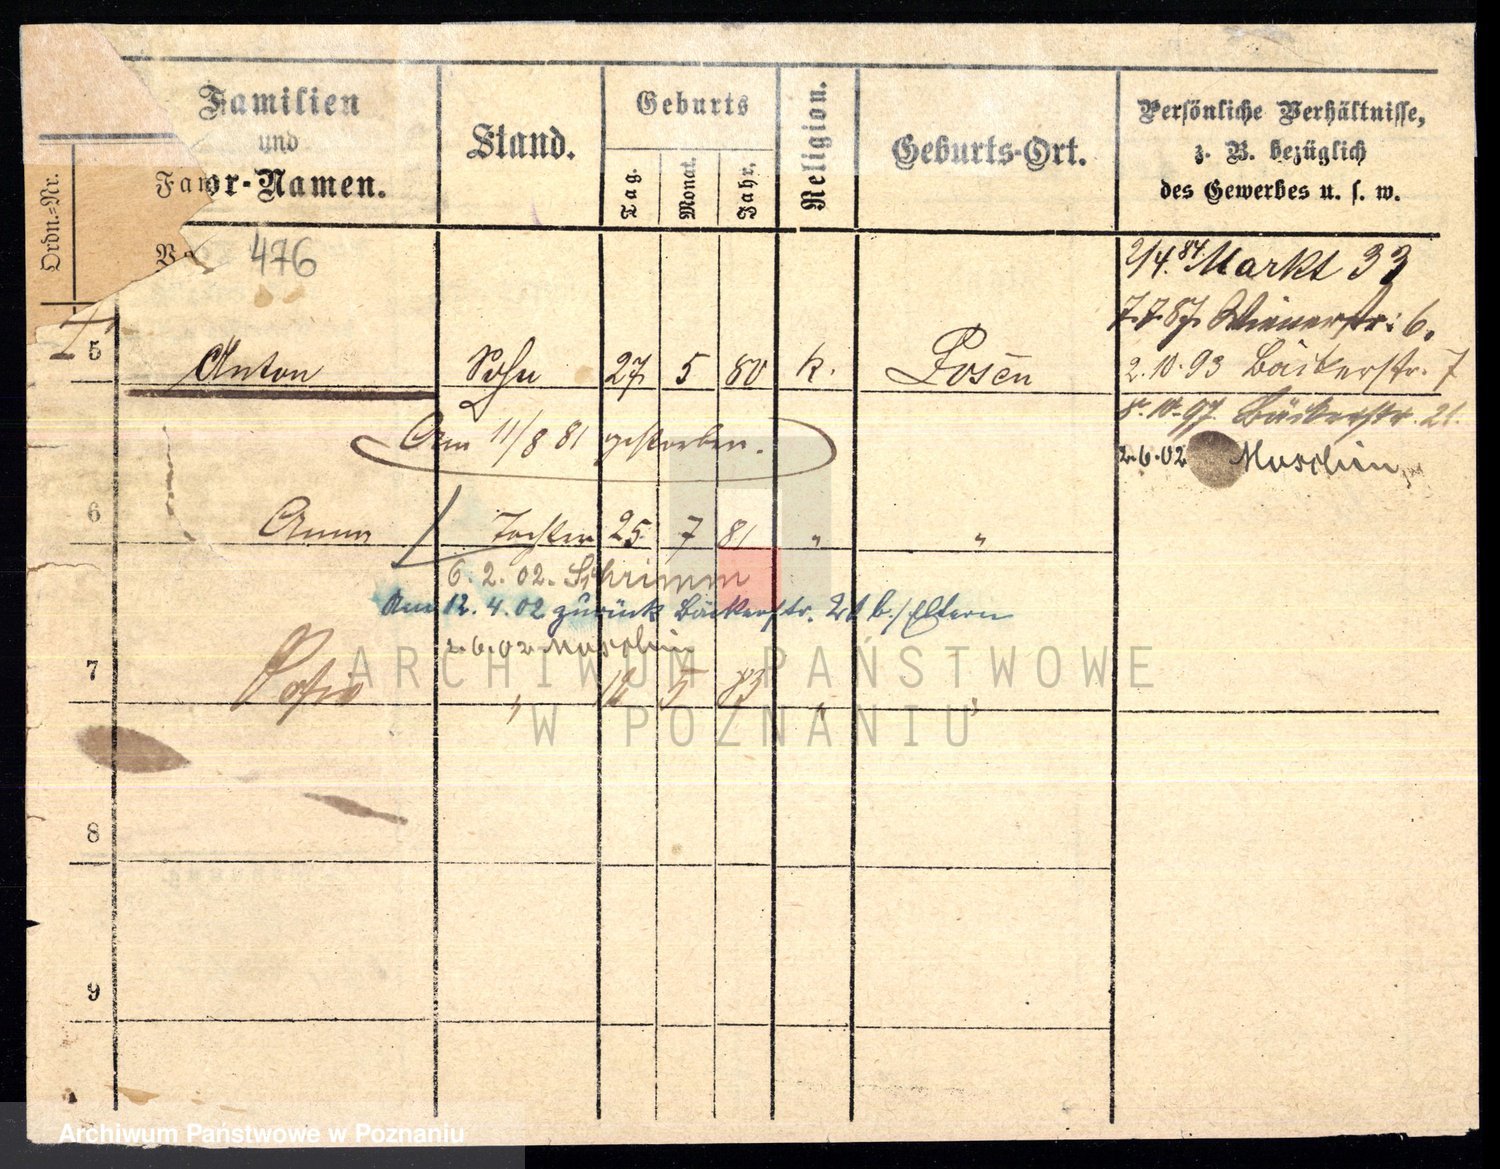 Familien
und
Vor-Namen.
Stand.
Geburts
Tag.
Monat.
Jahr.
Religion.
Geburts-Ort.
Persönliche Verhältnisse,
z. B. bezüglich
des Gewerbes u. s. w.
Ordn.-Nr.
Fa
476
2/4. 84. Markt 33
7.7.87. Wienerstr: 6.
2.10.93 Bäckerstr. 7
8.10.97. Bäckerstr. 21.
2.6.02 Moschin
5 Anton Sohn 27 5 80 k. Posen
Am 11/8 81 gestorben.
6 Anna Tochter 25 7 81 " "
6. 2. 02. Schrimm
Am 12. 4. 02 zurück Bäckerstr. 21 b./Eltern
2.6.02 Moschin
7 " 5 83 " "
8
9
ARCHIWUM PAŃSTWOWE
W POZNANIU
Archiwum Państwowe w Poznaniu